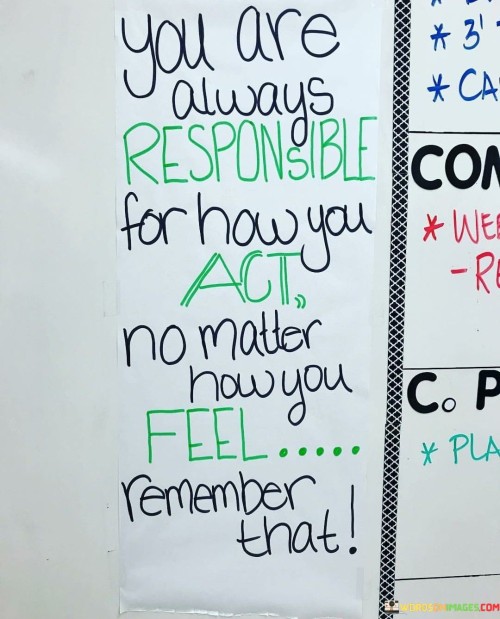 you are
always
RESPONSIBLE
for how you
ACT,
no matter
how you
FEEL.....
remember
that!
* 3'
* CA
CON
* WEE
-RE
C. P
* PLA
WORDSONIMAGES.COM